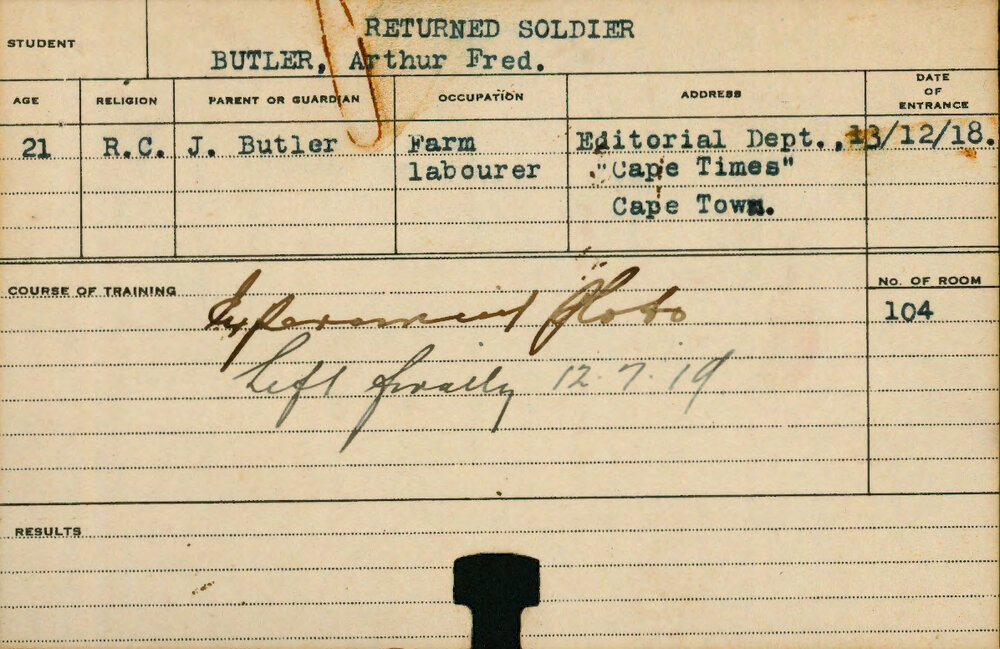 RETURNED SOLDIER
STUDENT
BUTLER, Arthur Fred.
AGE RELIGION PARENT OR GUARDIAN OCCUPATION ADDRESS DATE OF ENTRANCE
21 R.C. J. Butler Farm Editorial Dept., 13/12/18.
labourer "Cape Times"
Cape Town.
COURSE OF TRAINING
NO. OF ROOM
Experimental Plots
104
Left finally 12.7.19
RESULTS